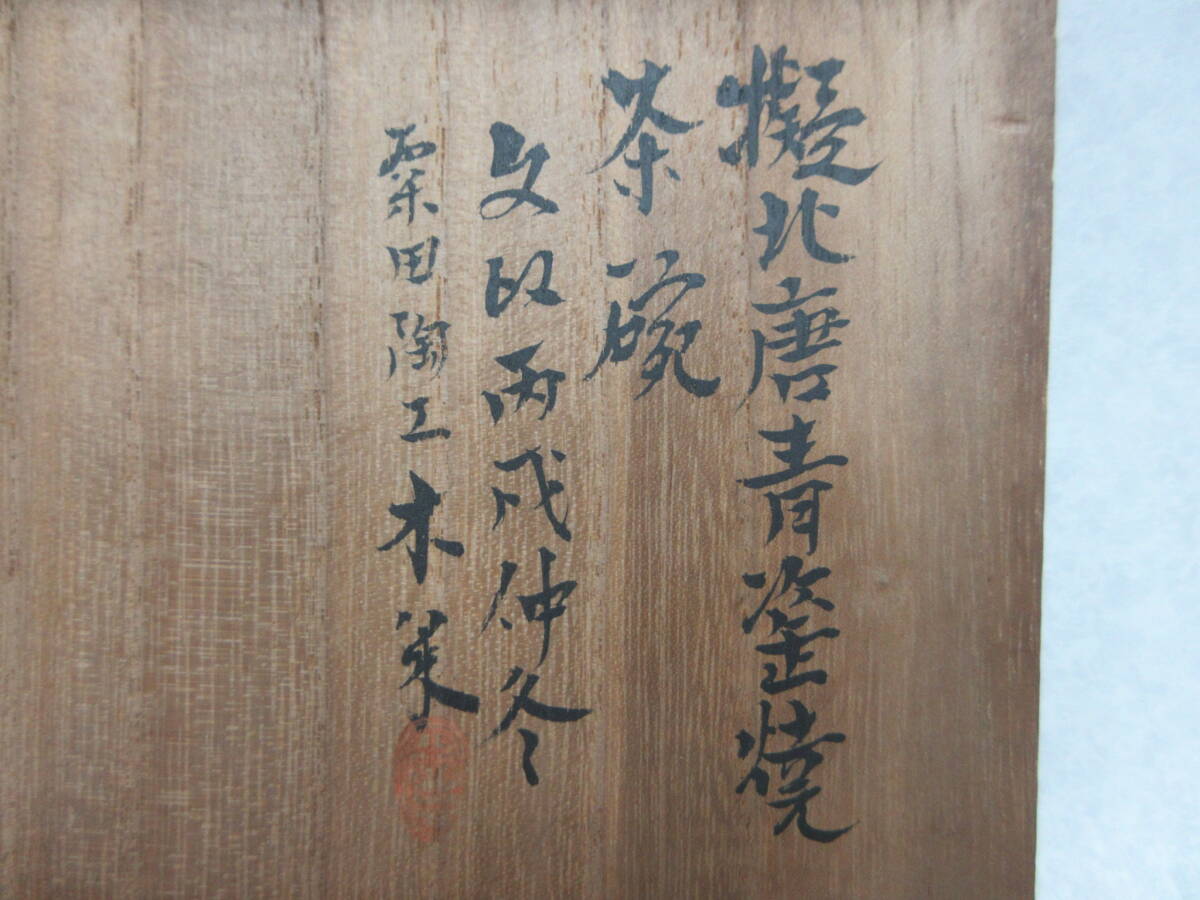 擬北唐青瓷焼
茶碗
文政丙戌仲冬
粟田陶工木米